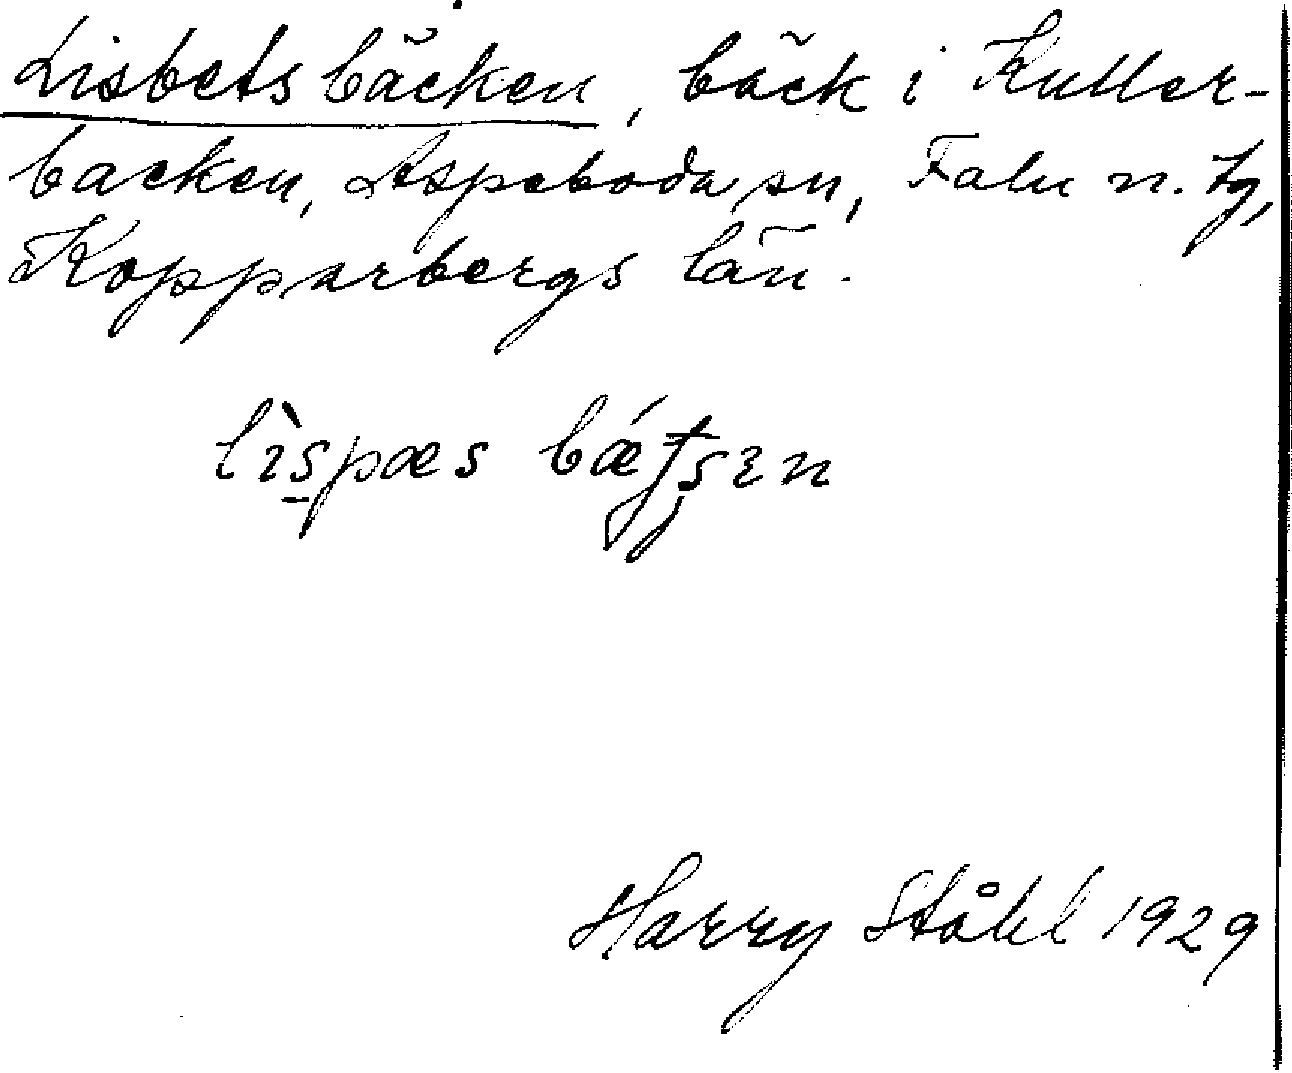 Lisbetsbäcken, bäck i Kuller-
backen, Aspeboda sn, Falu n. tg,
Kopparbergs län.
lìspæs
Harry Ståhl 1929